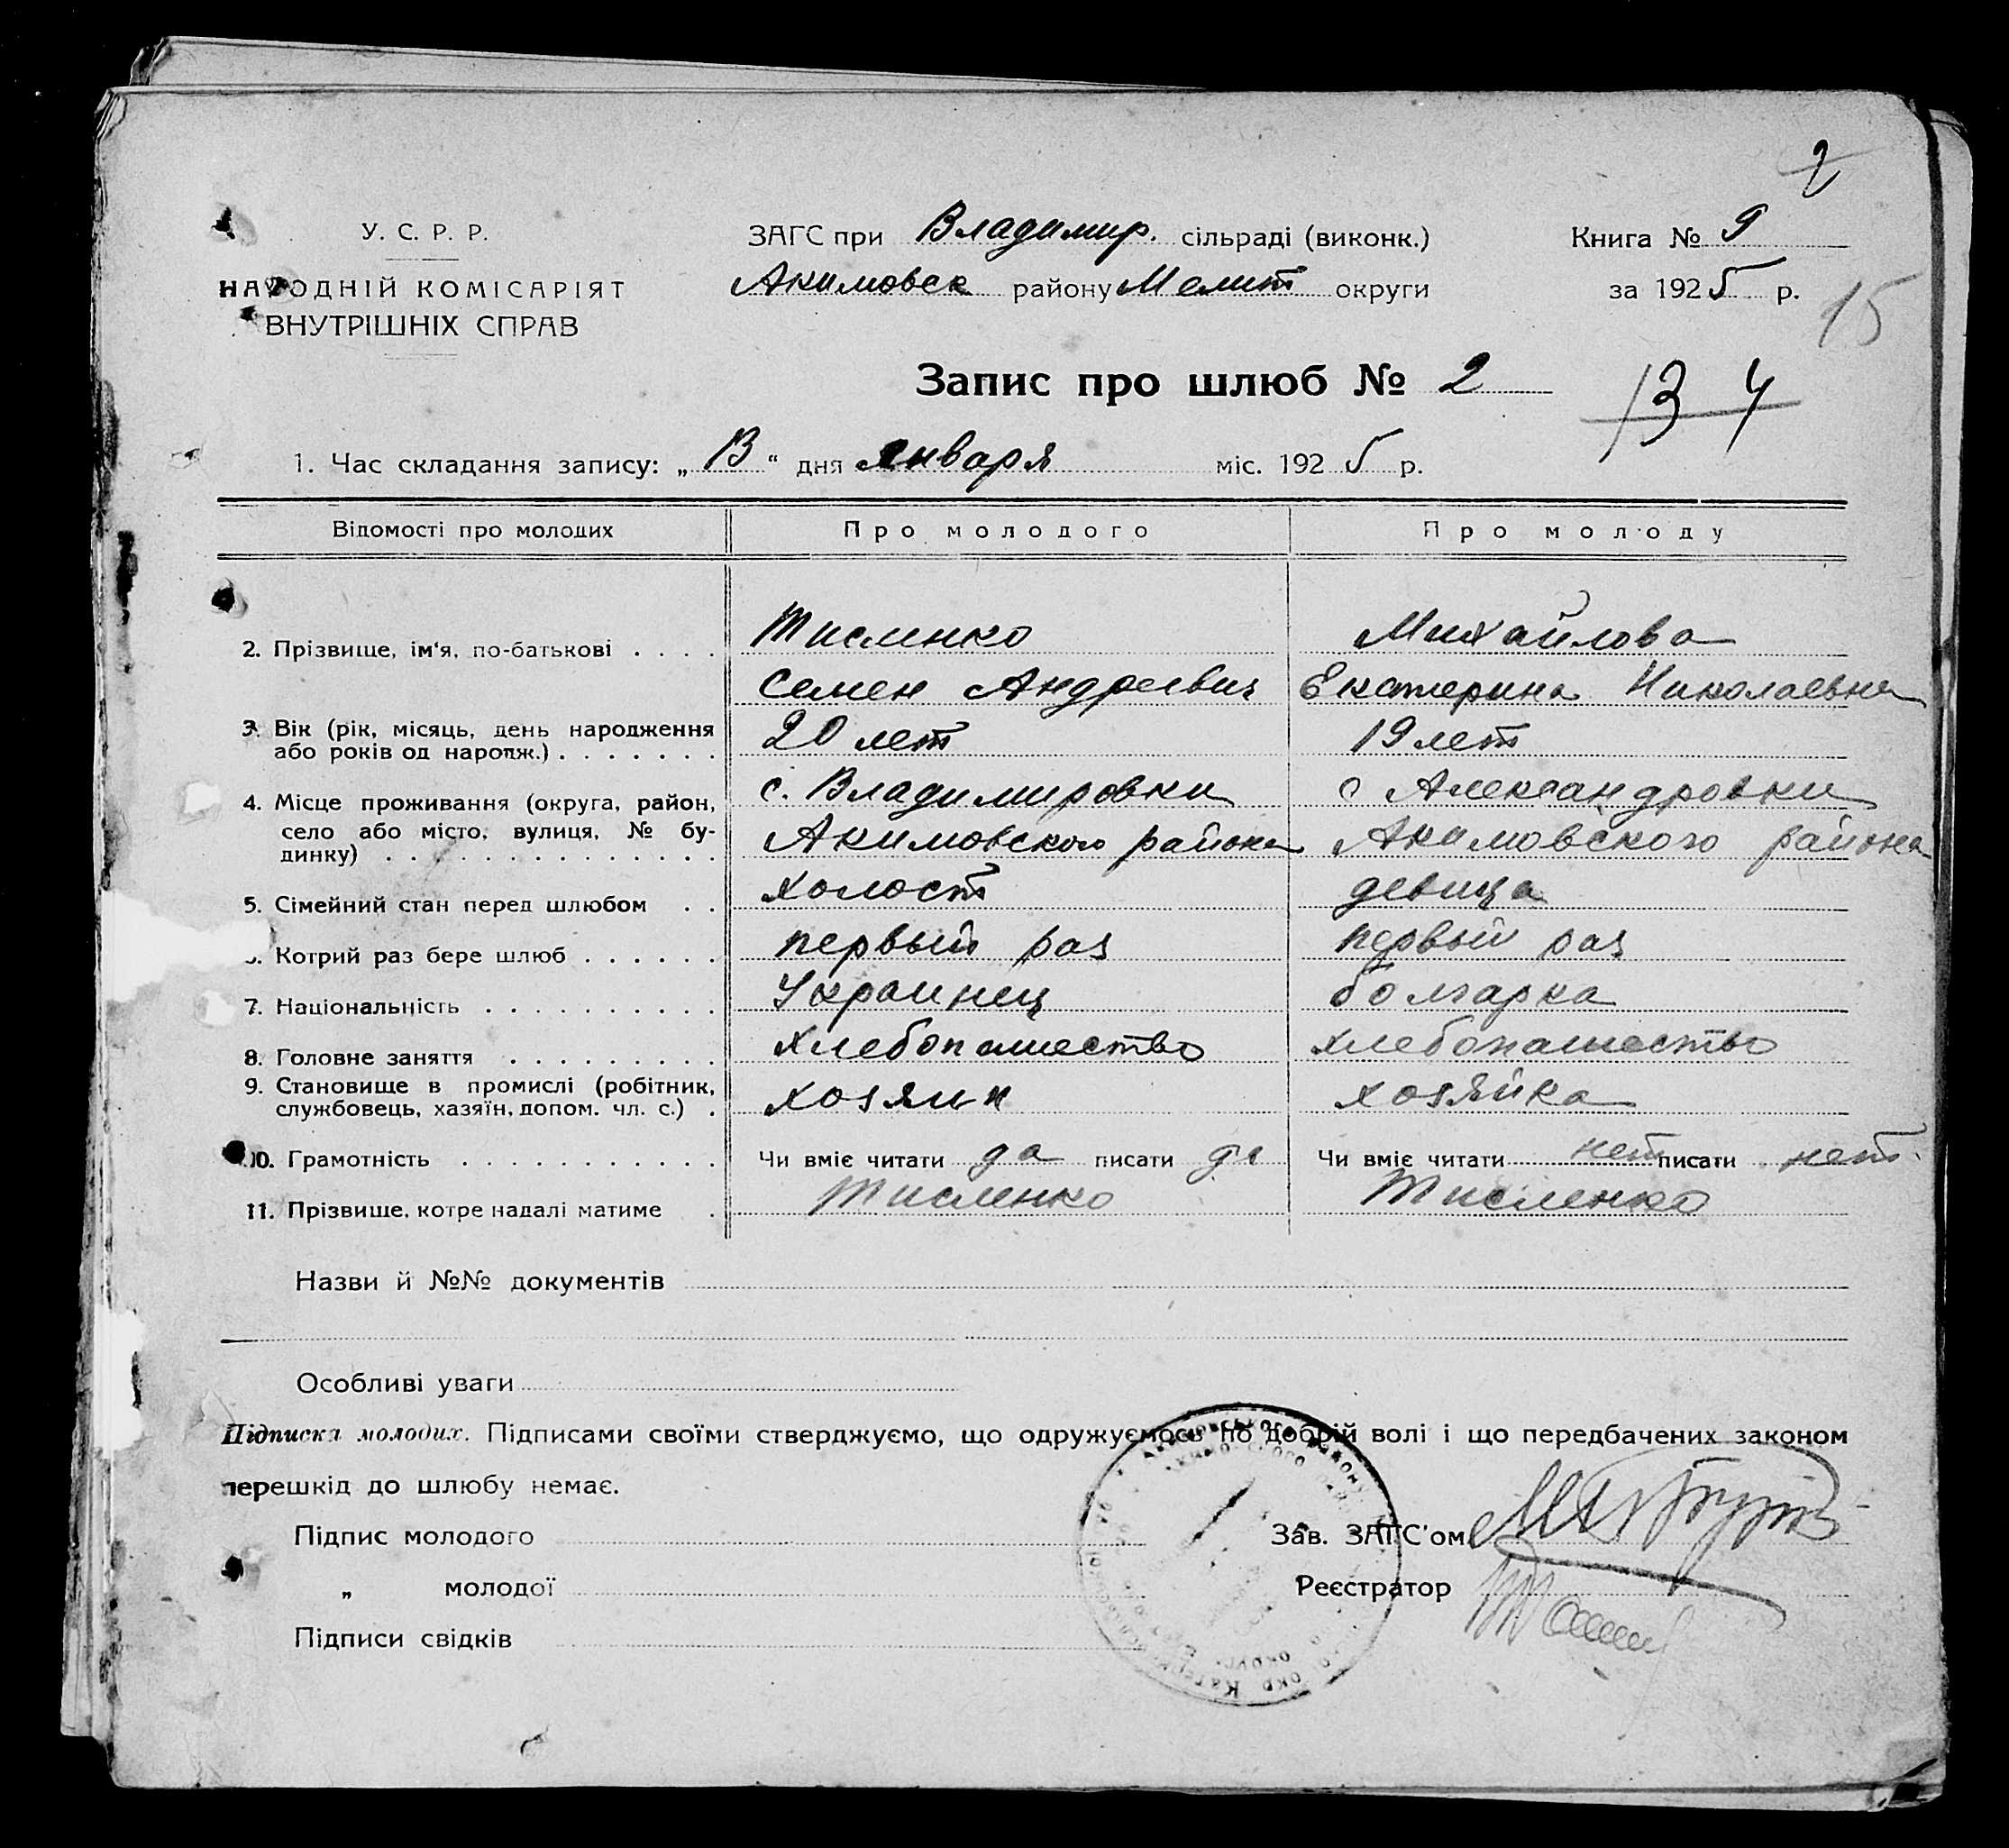 2
У. С. Р. Р.
НАРОДНІЙ КОМІСАРІЯТ
ВНУТРІШНІХ СПРАВ
ЗАГС при Владимир. сільраді (виконк.)
Акимовск району Мелит округи
Книга № 9
за 1925 р.
15
Запис про шлюб № 2
13 4
1. Час складання запису: „13“ дня января міс. 1925 р.
Відомості про молодих Про молодого Про молоду
2. Прізвище, ім'я, по-батькові . . . . Тисленко Михайлова
Семен Андреевич Екатерина Николаевна
3. Вік (рік, місяць, день народження 20 лет 19 лет
або років од народж.) . . . . . . .
4. Місце проживання (округа, район, с. Владимировки с Александровки
село або місто, вулиця, № бу- Акимовского района Акимовского района
динку) . . . . . . . . . . . . . .
5. Сімейний стан перед шлюбом . . холост девица
Котрий раз бере шлюб . . . . . . первый раз первый раз
7. Національність . . . . . . . . . . Украинец болгарка
8. Головне заняття . . . . . . . . . хлебопашество хлебопашество
9. Становище в промислі (робітник, хозяин хозяйка
службовець, хазяїн, допом. чл. с.) .
10. Грамотність . . . . . . . . . . . Чи вміє читати да писати да Чи вміє читати нет писати нет.
11. Прізвище, котре надалі матиме . Тисленко Тисленко
Назви й №№ документів
Особливі уваги
Підписка молодих. Підписами своїми стверджуємо, що одружуємось по добрій волі і що передбачених законом
перешкід до шлюбу немає.
Підпис молодого
Зав. ЗАГС'ом
„ молодої
Реєстратор
Підписи свідків